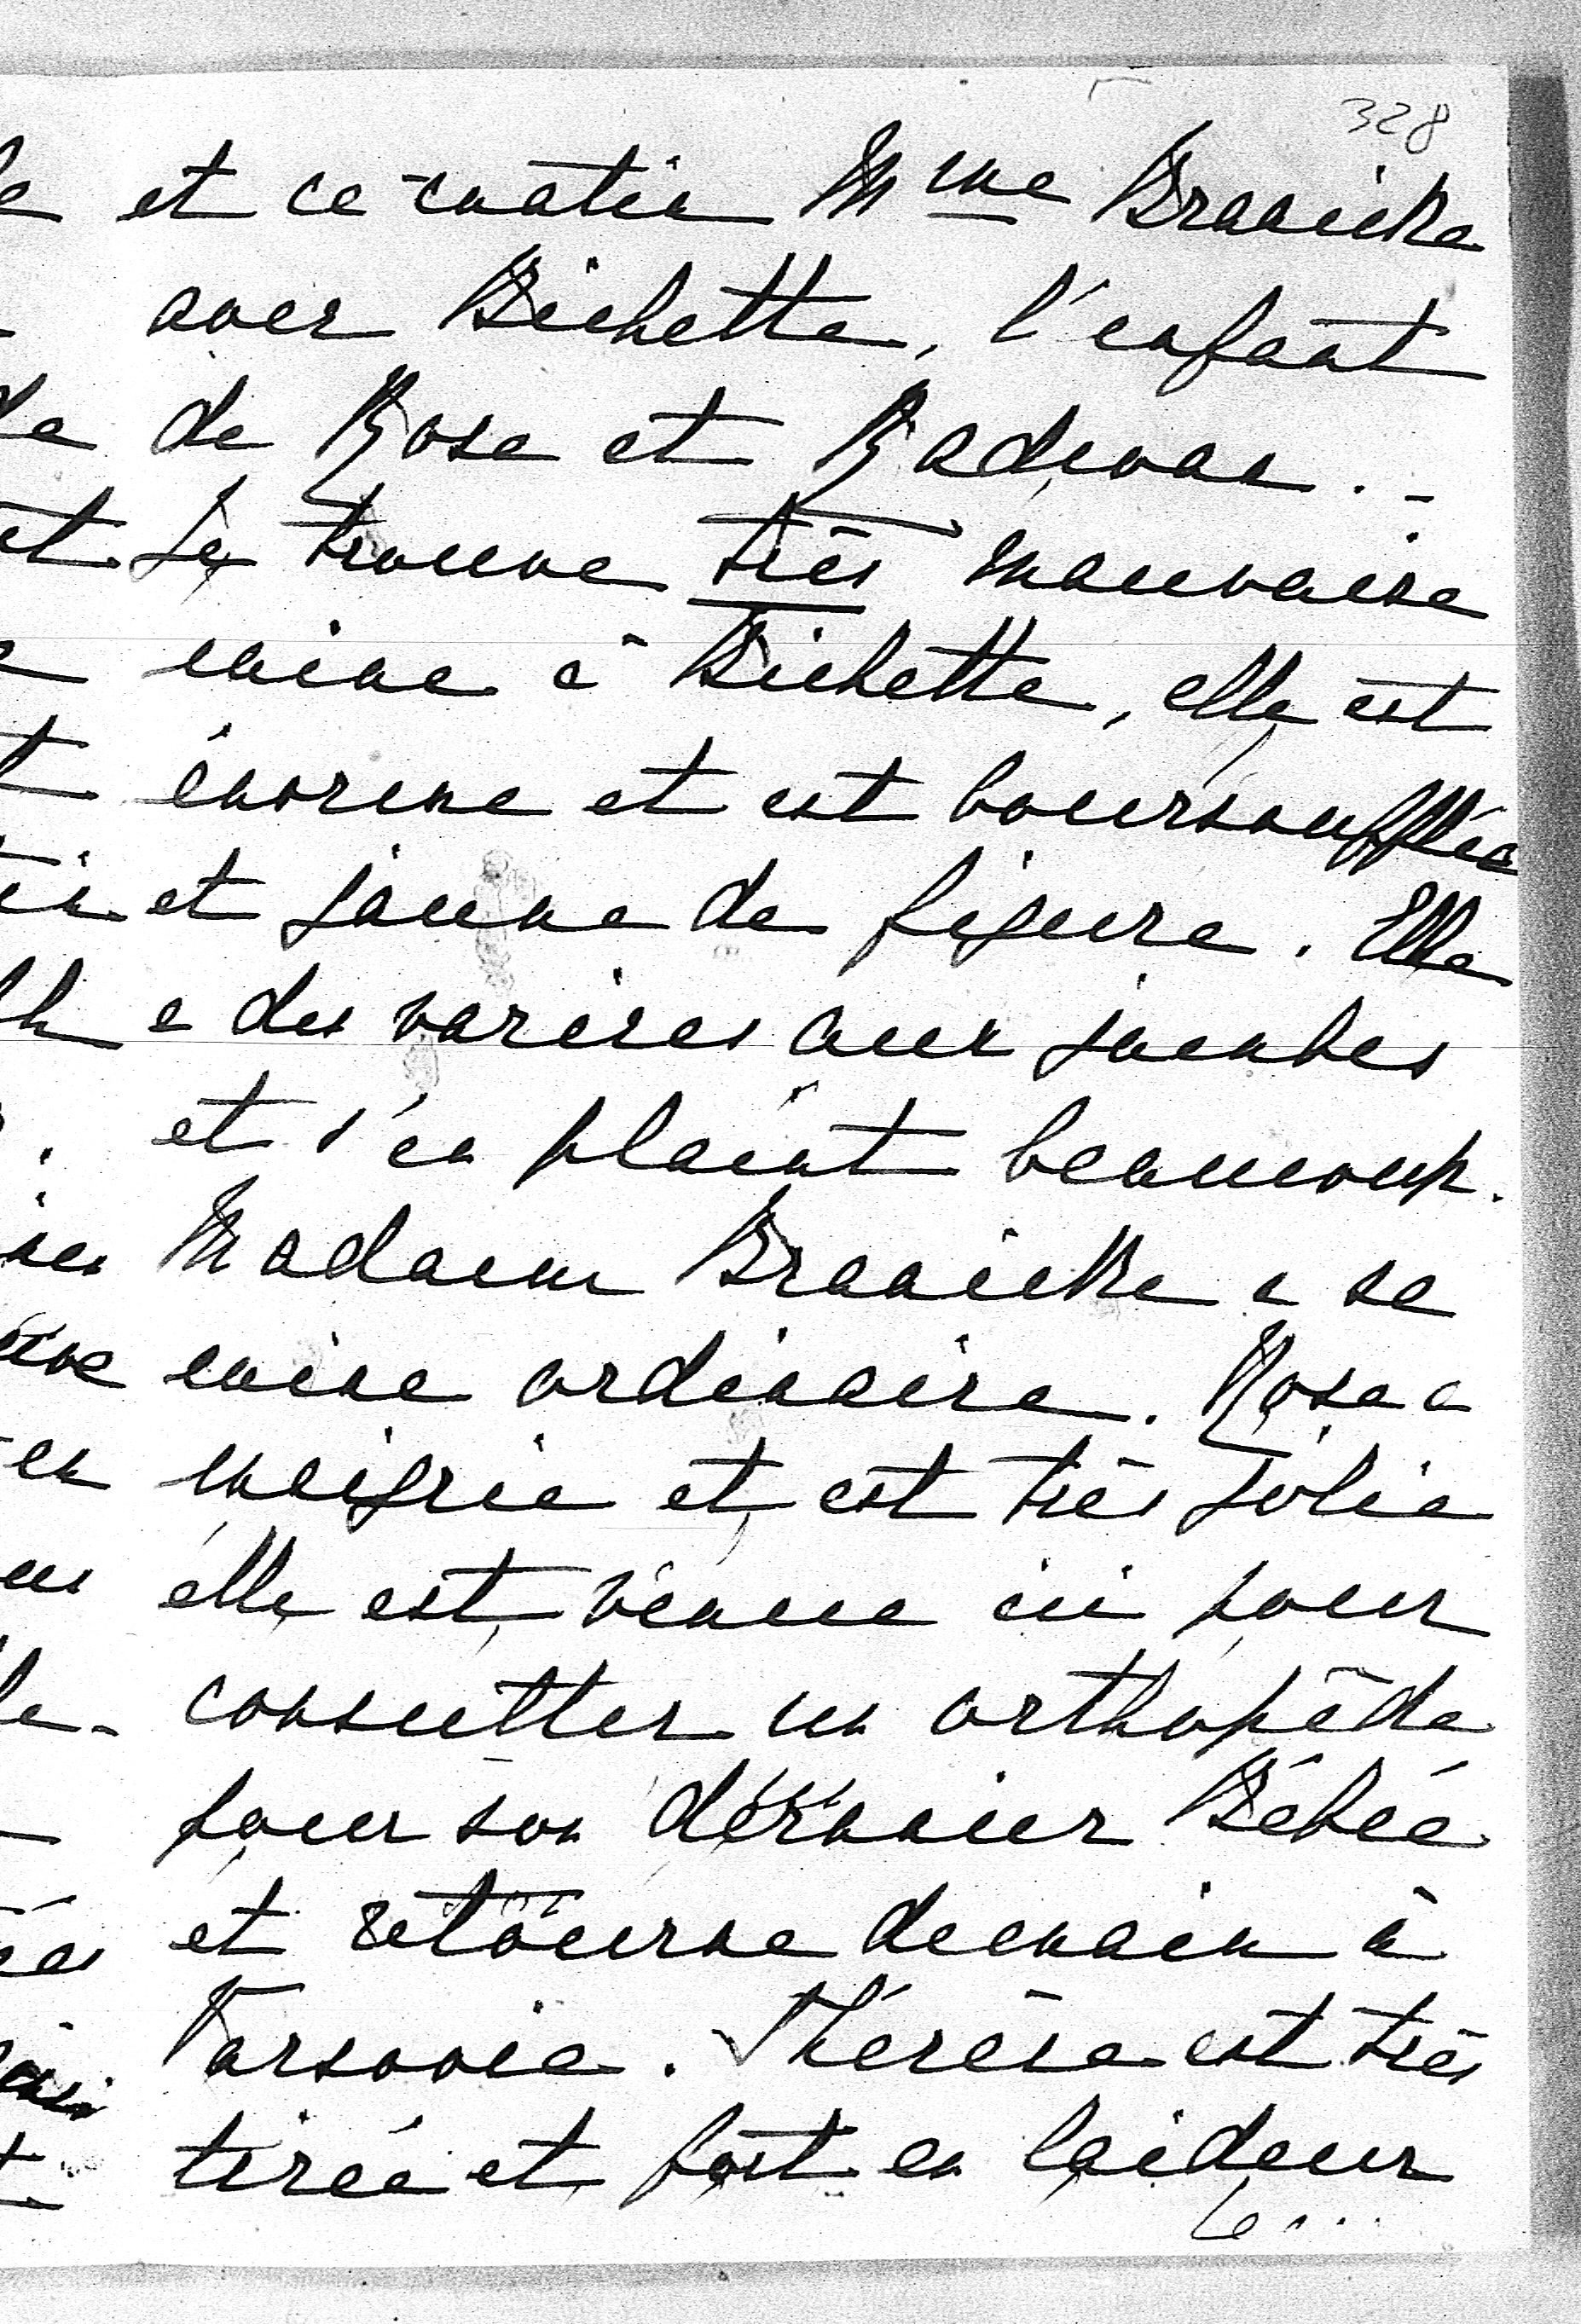 328
et ce matin Mme Branicka
avec Bichette, l'enfant
de Rose et Radiwan. -
Je trouve très mauvaise
mine à Bichette, elle est
énorme et est boursoufflée
et jaune de figure. Elle
a des varices aux jambes
et s'en plaint beaucoup.
Madame Branicka a sa
mine ordinaire. Rose a
maigrie et est très jolie
elle est venue ici pour
consulter un orthopède
pour son dernier Bébée
et retourne demain à
Varsovie. Thérèse est très
tirée et fort en laideur